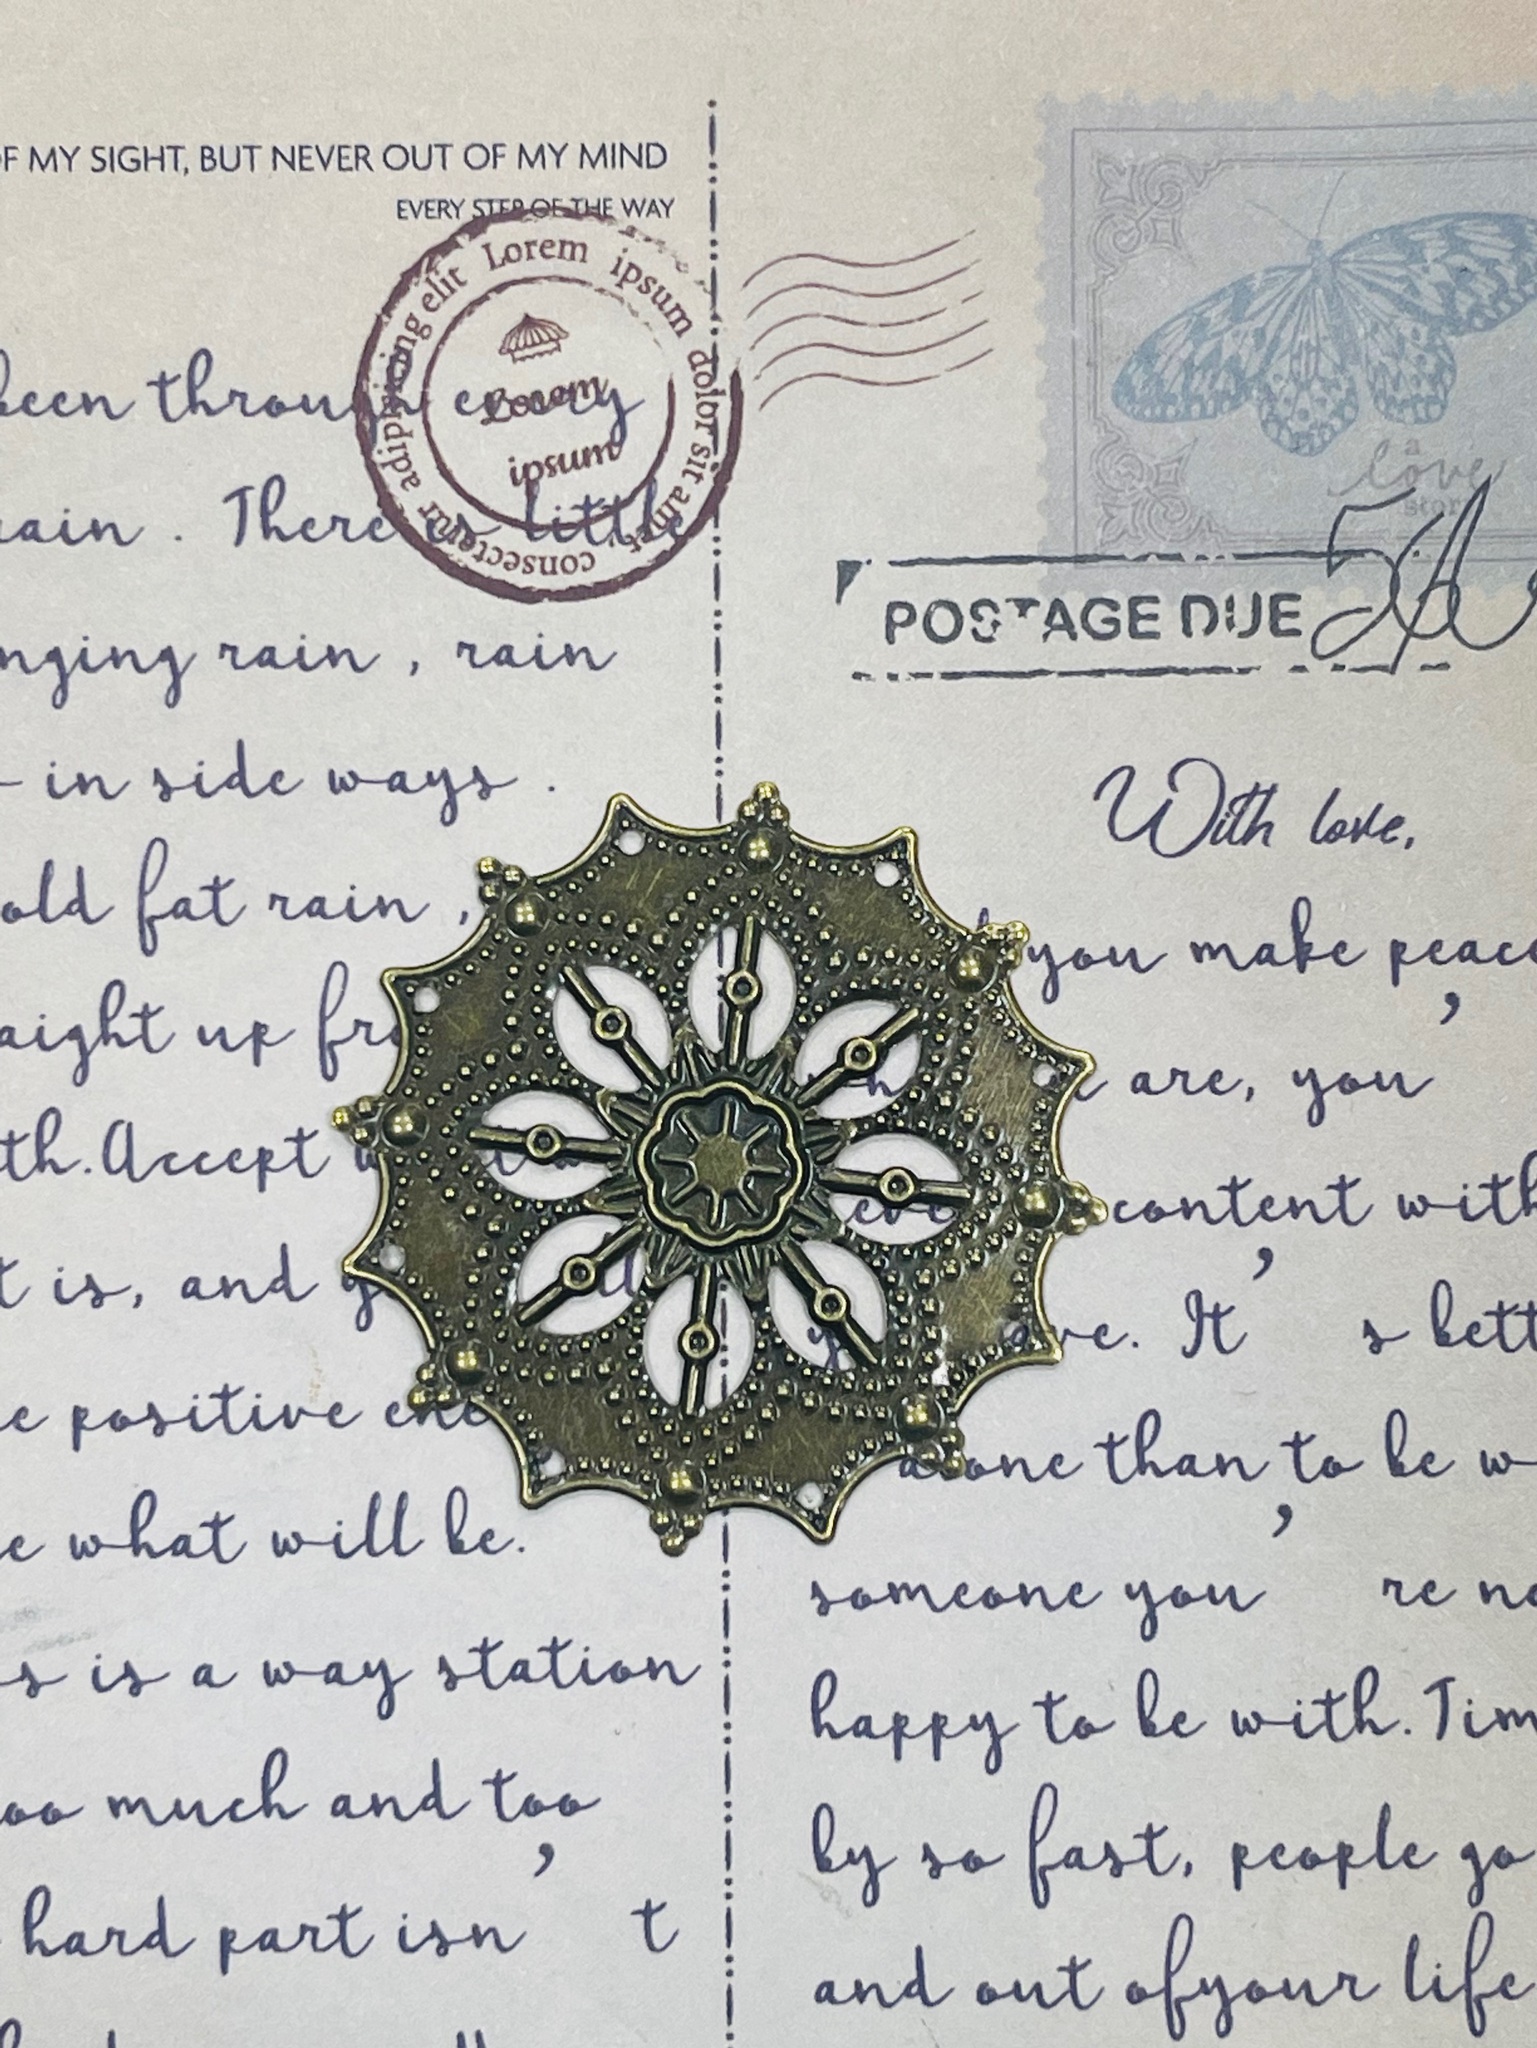 OF MY SIGHT, BUT NEVER OUT OF MY MIND
EVERY STEP OF THE WAY
Lorem ipsum dolor sit amet, consectetur adipiscing elit
Lorem
ipsum
been through every
rain . There is little
rain , rain
in side ways .
old fat rain ,
aight up
th. Accept
t is, and
e positive
e what will be.
s is a way station
oo much and too
hard part isn’ t
a
love
story
POSTAGE DUE
With love,
you make peace
are, you’
content with
. It’ s bett
alone than to be w
someone you’ re no
happy to be with. Tim
by so fast, people go
and out ofyour life